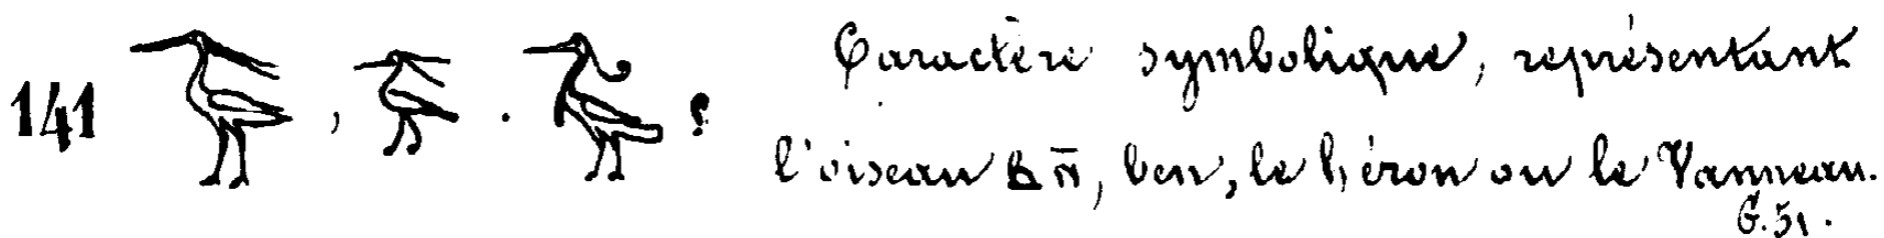 141 , . ? Caractère symbolique, représentant
l'oiseau ⲃⲛ̄, ben, le héron ou le Vanneau.
G. 51.